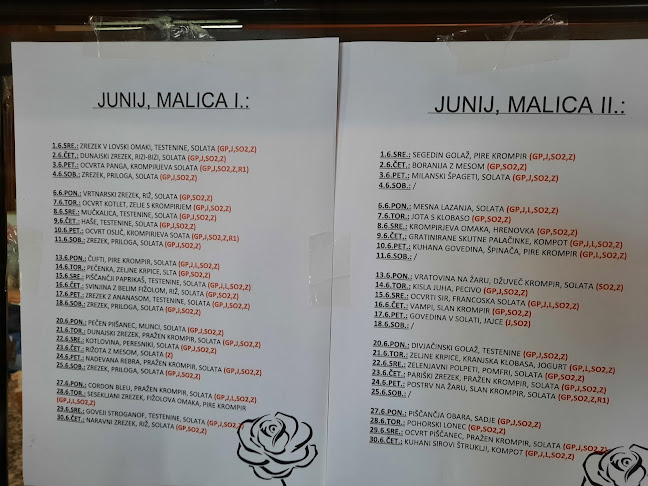 JUNIJ, MALICA I.:
1.6.SRE.: ZREZEK V LOVSKI OMAKI, TESTENINE, SOLATA (GP,J,SO2,Z)
2.6.ČET.: DUNAJSKI ZREZEK, RIZI-BIZI, SOLATA (GP,J,SO2,Z)
3.6.PET.: OCVRTA PANGA, KROMPIRJEVA SOLATA (GP,J,SO2,Z,R1)
4.6.SOB.: ZREZEK, PRILOGA, SOLATA (GP,J,SO2,Z)
6.6.PON.: VRTNARSKI ZREZEK, RIŽ, SOLATA (GP,SO2,Z)
7.6.TOR.: OCVRT KOTLET, ZELJE S KROMPIRJEM (GP,J,SO2,Z)
8.6.SRE.: MUČKALICA, TESTENINE, SOLATA (GP,J,SO2,Z)
9.6.ČET.: HAŠE, TESTENINE, SOLATA (GP,J,SO2,Z)
10.6.PET.: OCVRT OSLIČ, KROMPIRJEVA SOATA (GP,J,SO2,Z,R1)
11.6.SOB.: ZREZEK, PRILOGA, SOLATA (GP,J,SO2,Z)
13.6.PON.: ČUFTI, PIRE KROMPIR, SOLATA (GP,J,L,SO2,Z)
14.6.TOR.: PEČENKA, ZELJNE KRPICE, SLTA (GP,SO2,Z)
15.6.SRE.: PIŠČANČJI PAPRIKAŠ, TESTENINE, SOLATA (GP,J,L,SO2,Z)
16.6.ČET.: SVINJINA Z BELIM FIŽOLOM, RIŽ, SOLATA (GP,SO2,Z)
17.6.PET.: ZREZEK Z ANANASOM, TESTENINE, SOLATA (GP,J,SO2,Z)
18.6.SOB.: ZREZEK, PRILOGA, SOLATA (GP,J,SO2,Z)
20.6.PON.: PEČEN PIŠANEC, MLINCI, SOLATA (GP,J,SO2,Z)
21.6.TOR.: DUNAJSKI ZREZEK, PRAŽEN KROMPIR, SOLATA (GP,J,SO2,Z)
22.6.SRE.: KOTLOVINA, PERESNIKI, SOLATA (GP,J,SO2,Z)
23.6.ČET.: RIŽOTA Z MESOM, SOLATA (Z)
24.6.PET.: NADEVANA REBRA, PRAŽEN KROMPIR, SOLATA (GP,J,SO2,Z)
25.6.SOB.: ZREZEK, PRILOGA, SOLATA (GP,J,SO2,Z)
27.6.PON.: CORDON BLEU, PRAŽEN KROMPIR, SOLATA (GP,J,L,SO2,Z)
28.6.TOR.: SESEKLJANI ZREZEK, FIŽOLOVA OMAKA, PIRE KROMPIR
(GP,J,L,SO2,Z)
29.6.SRE.: GOVEJI STROGANOF, TESTENINE, SOLATA (GP,J,SO2,Z)
30.6.ČET.: NARAVNI ZREZEK, RIŽ, SOLATA (GP,SO2,Z)
JUNIJ, MALICA II.:
1.6.SRE.: SEGEDIN GOLAŽ, PIRE KROMPIR (GP,J,L,SO2,Z)
2.6.ČET.: BORANIJA Z MESOM (GP,SO2,Z)
3.6.PET.: MILANSKI ŠPAGETI, SOLATA (GP,J,SO2,Z)
4.6.SOB.: /
6.6.PON.: MESNA LAZANJA, SOLATA (GP,J,L,SO2,Z)
7.6.TOR.: JOTA S KLOBASO (GP,SO2,Z)
8.6.SRE.: KROMPIRJEVA OMAKA, HRENOVKA (GP,SO2,Z)
9.6.ČET.: GRATINIRANE SKUTNE PALAČINKE, KOMPOT (GP,J,L,SO2,Z)
10.6.PET.: KUHANA GOVEDINA, ŠPINAČA, PIRE KROMPIR (GP,J,L,SO2,Z)
11.6.SOB.: /
13.6.PON.: VRATOVINA NA ŽARU, DŽUVEČ KROMPIR, SOLATA (SO2)
14.6.TOR.: KISLA JUHA, PECIVO (GP,SO2,Z)
15.6.SRE.: OCVRTI SIR, FRANCOSKA SOLATA (GP,J,L,SO2,Z)
16.6.ČET.: VAMPI, SLAN KROMPIR (GP,SO2,Z)
17.6.PET.: GOVEDINA V SOLATI, JAJCE (J,SO2)
18.6.SOB.: /
20.6.PON.: DIVJAČINSKI GOLAŽ, TESTENINE (GP,J,SO2,Z)
21.6.TOR.: ZELJNE KRPICE, KRANSKA KLOBASA, JOGURT (GP,J,L,SO2,Z)
22.6.SRE.: ZELENJAVNI POLPETI, POMFRI, SOLATA (GP,J,SO2,Z)
23.6.ČET.: PARIŠKI ZREZEK, PRAŽEN KROMPIR, SOLATA (GP,J,SO2,Z)
24.6.PET.: POSTRV NA ŽARU, SLAN KROMPIR, SOLATA (GP,SO2,Z,R1)
25.6.SOB.: /
27.6.PON.: PIŠČANČJA OBARA, SADJE (GP,J,SO2,Z)
28.6.TOR.: POHORSKI LONEC (GP,SO2,Z)
29.6.SRE.: OCVRT PIŠČANEC, PRAŽEN KROMPIR, SOLATA (GP,J,SO2,Z)
30.6.ČET.: KUHANI SIROVI ŠTRUKLJI, KOMPOT (GP,J,L,SO2,Z)